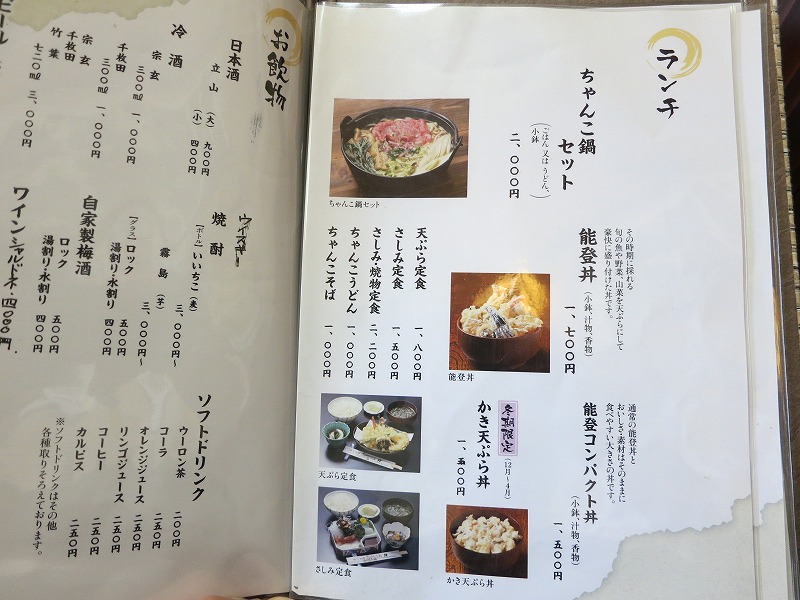 ランチ
ちゃんこ鍋
セット
(ごはん又はうどん、
小鉢)
二、〇〇〇円
ちゃんこ鍋セット
その時期に採れる
旬の魚や野菜、山菜を天ぷらにして
豪快に盛り付けた丼です。
能登丼
(小鉢、汁物、香物)
一、七〇〇円
能登丼
天ぷら定食 一、八〇〇円
さしみ定食 一、五〇〇円
さしみ・焼物定食 二、二〇〇円
ちゃんこうどん 一、〇〇〇円
ちゃんこそば 一、〇〇〇円
通常の能登丼と
おいしさ・素材はそのままに
食べやすい大きさの丼です。
能登コンパクト丼
(小鉢、汁物、香物)
一、五〇〇円
冬期限定
(12月~4月)
かき天ぷら丼
一、五〇〇円
かき天ぷら丼
天ぷら定食
さしみ定食
お飲物
日本酒
立山 (大) 九〇〇円
(小) 四〇〇円
冷酒
宗玄
三〇〇ml 一、〇〇〇円
千枚田
三〇〇ml 一、〇〇〇円
宗玄
千枚田
竹葉
七二〇ml 三、〇〇〇円
ビール
ウイスキー
焼酎
[ボトル] いいちこ (麦) 三、〇〇〇円~
霧島 (芋) 三、〇〇〇円~
[グラス] ロック 五〇〇円
湯割り・水割り 四〇〇円
自家製梅酒
ロック 五〇〇円
湯割り・水割り 四〇〇円
ワイン シャルドネ 4000円
ソフトドリンク
ウーロン茶 二〇〇円
コーラ 二五〇円
オレンジジュース 二五〇円
リンゴジュース 二五〇円
コーヒー 二五〇円
カルピス 二五〇円
※ソフトドリンクはその他
各種取りそろえております。